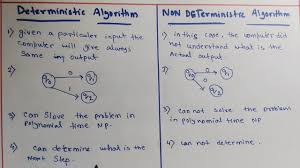 Deterministic Algorithm
1) given a particuler input the
computer will give always
same output
2)
q1
0
1
q2
3) can Slove the problem in
polynomial time NP
4) can determine what is the
next Step.
NON DETerministic Algorithm
1) in this case, the computer did
not understand what is the
Actual output.
2)
0
0
q2
3) can not solve the problem
in polynomial time NP
4) can not determine.